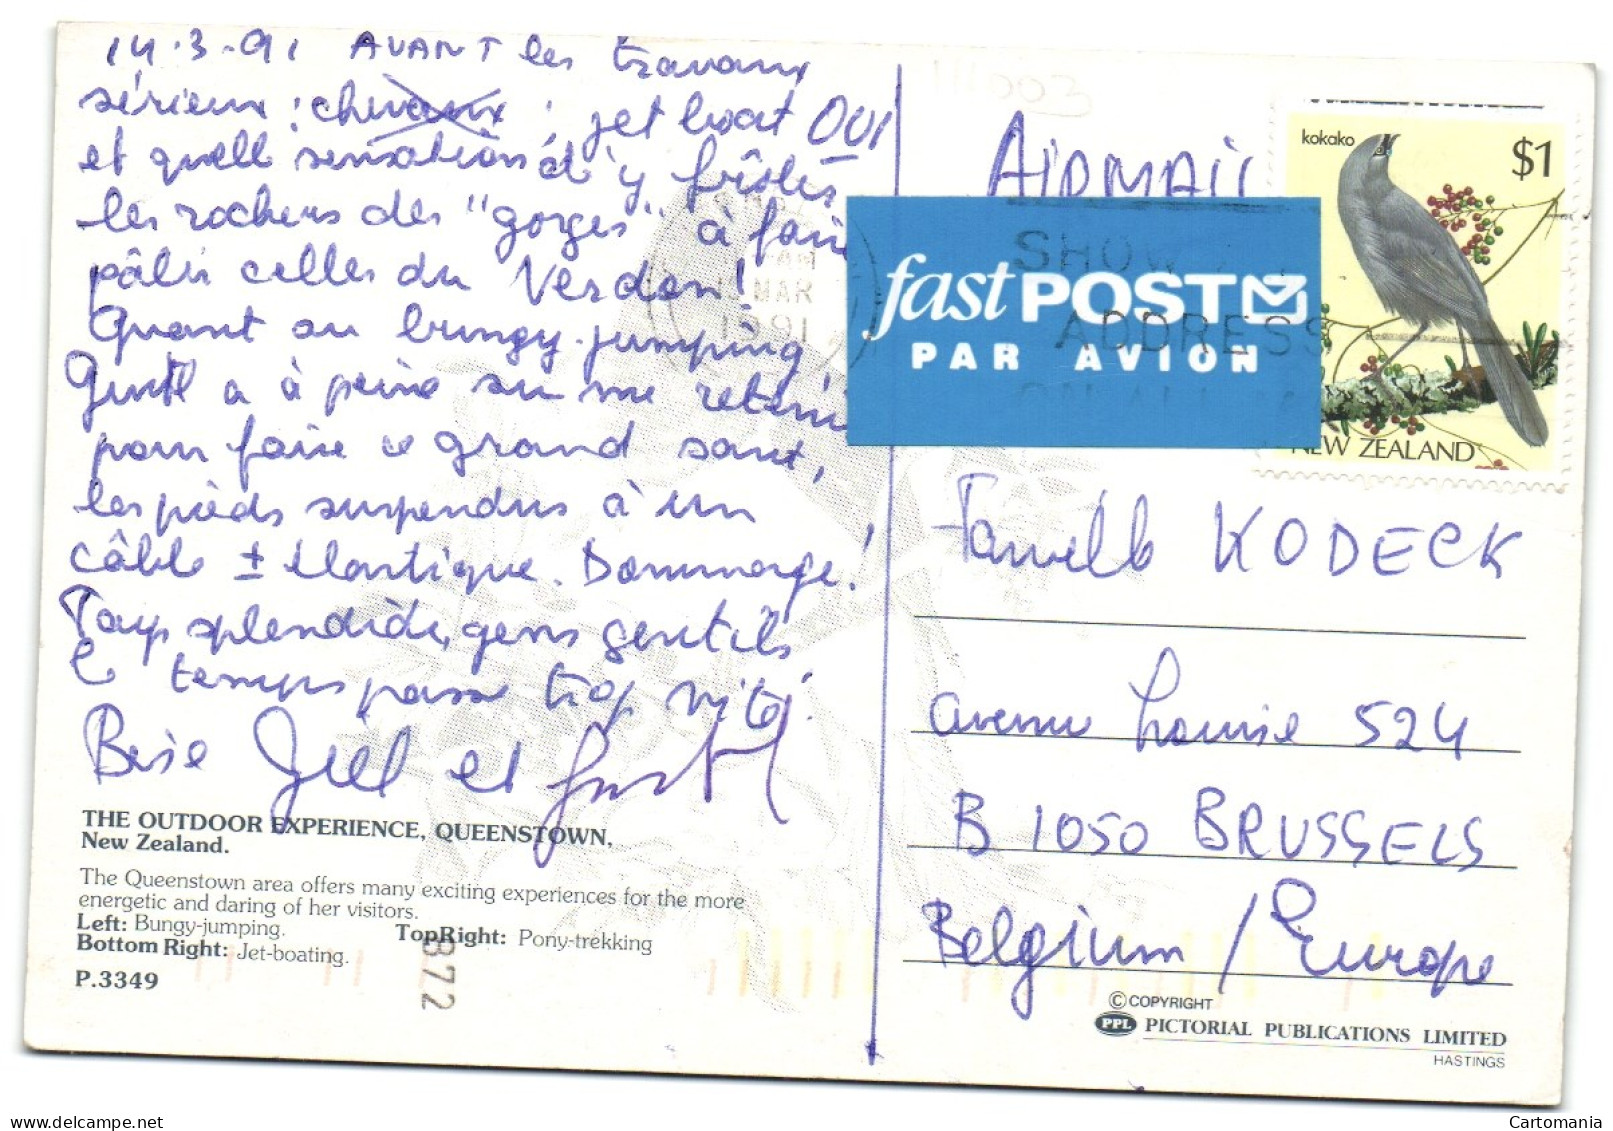 14.3.91 AVANT les travaux
sérieux : chevaux, jet boat OUI
et quelle sensation d'y frôler
les rochers des "gorges" à faire
pâlir celles du Verdon!
Quant au bungy-jumping
a à peine su me retenir
pour faire ce grand saut,
les pieds suspendus à un
câble ± élastique. Dommage!
Pays splendide, gens gentils
temps passe trop vite!
Bise et
THE OUTDOOR EXPERIENCE, QUEENSTOWN,
New Zealand.
The Queenstown area offers many exciting experiences for the more
energetic and daring of her visitors.
Left: Bungy-jumping. TopRight: Pony-trekking
Bottom Right: Jet-boating.
P.3349
B72
AIRMAIL
kokako $1
NEW ZEALAND
fast POST
PAR AVION
SHOW
ADDRESS
MAR
1991
KODECK
avenue Louise 524
B 1050 BRUSSELS
Belgium / Europe
© COPYRIGHT
PPL PICTORIAL PUBLICATIONS LIMITED
HASTINGS
Cartomania